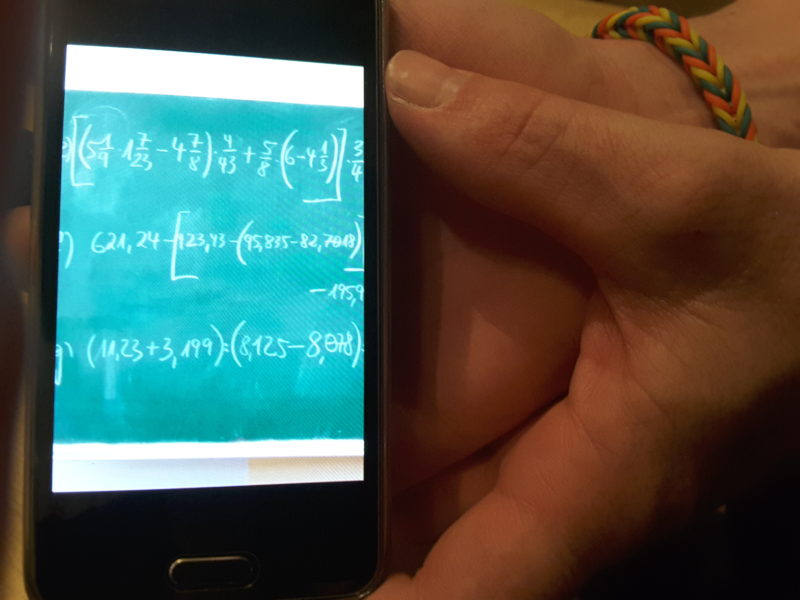 e) [(5 1/9 · 1 7/23 − 4 7/8) · 4/43 + 5/8 · (6 − 4 1/3)] · 3/4
f) 621,24 − [423,43 − (95,835 − 82,7018)
− 195,9
g) (11,23 + 3,199) : (8,125 − 8,078)